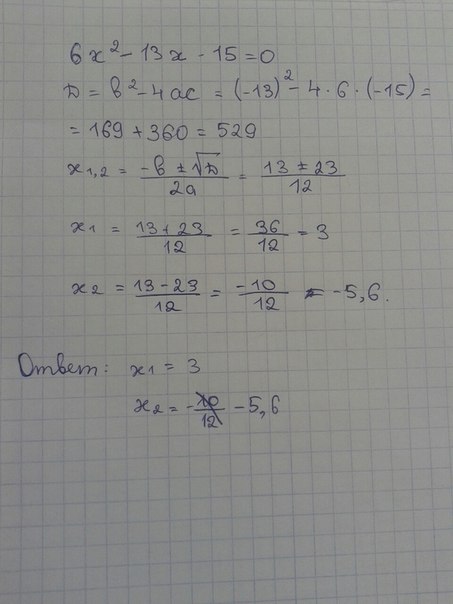 6x² - 13x - 15 = 0
D = b² - 4ac = (-13)² - 4 · 6 · (-15) =
= 169 + 360 = 529
x1,2 = (-b ± √D)/2a = (13 ± 23)/12
x1 = (13 + 23)/12 = 36/12 = 3
x2 = (13 - 23)/12 = -10/12 = -5,6.
Ответ: x1 = 3
x2 = -10/12 - 5,6